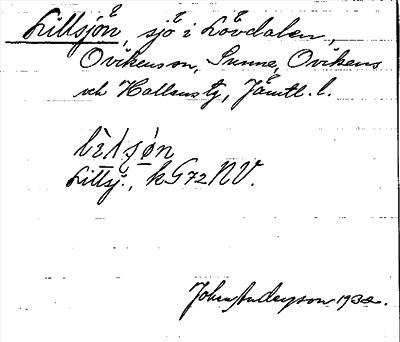 Lillsjön, sjö i Lövdalen,
Ovikenson, Sunne, Ovikens
och Hallens tg, Jämtl. l.
Lillsj., k G 72 NV.
Johan Anderson 1932.